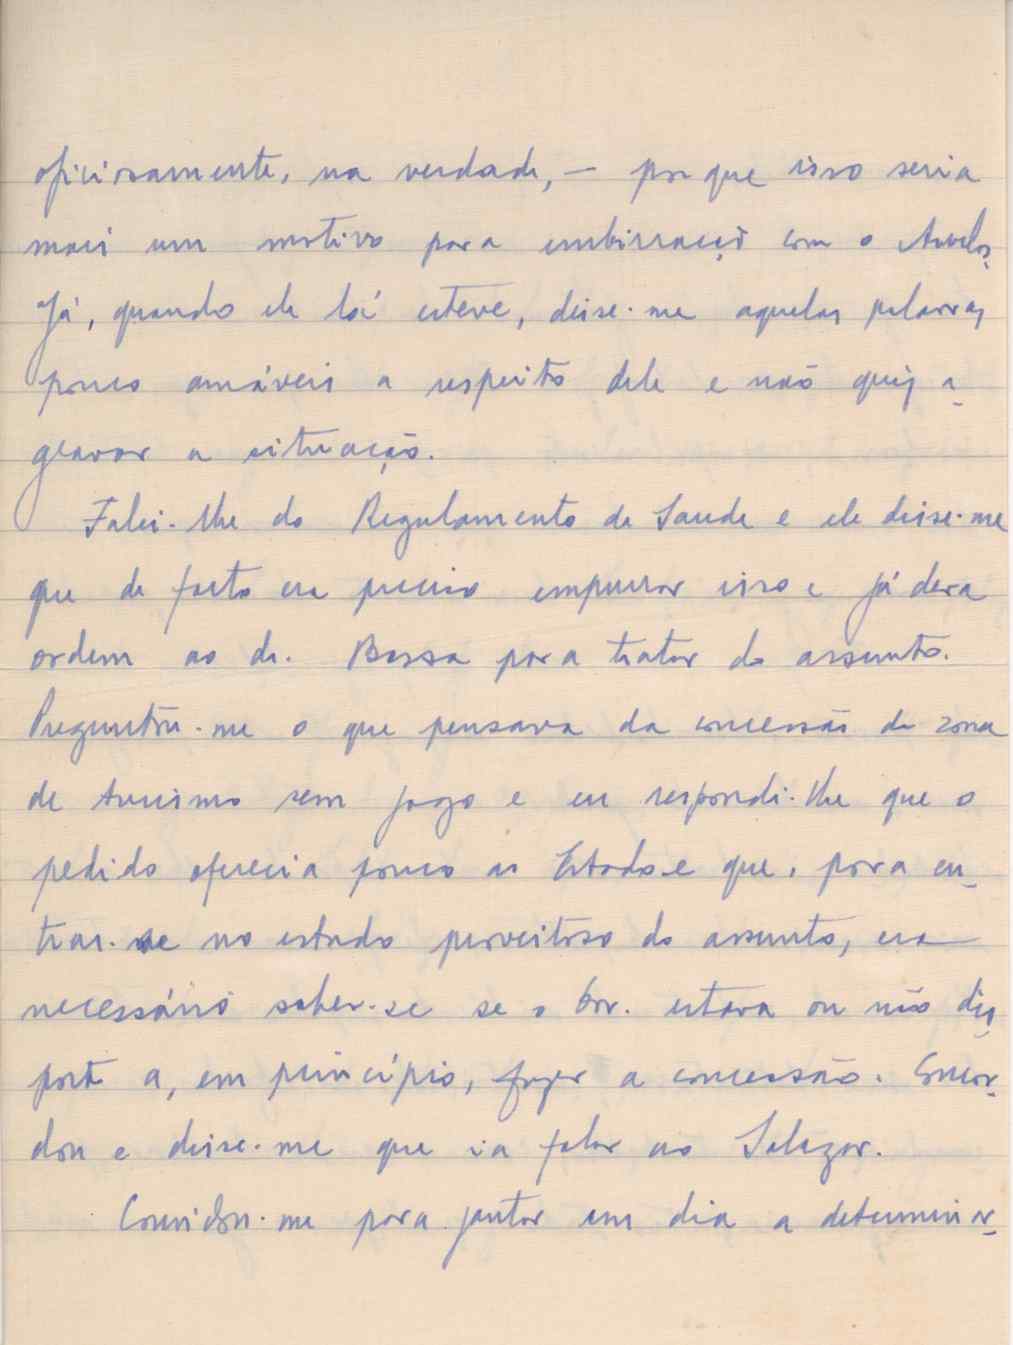 oficiosamente, na verdade, — porque isso seria
mais um motivo para embirração com o Avelos.
Já, quando ele lá esteve, disse-me aquelas palavras
pouco amáveis a respeito dele e não quiz a-
gravar a situação.
Falei-lhe do Regulamento de Saude e ele disse-me
que de facto era preciso empurrar isso e já dera
ordem ao dr. Bossa para tratar do assunto.
Preguntou-me o que pensava da concessão da zona
de turismo sem jogo e eu respondi-lhe que o
pedido oferecia pouco ao Estado e que, para en-
trar-se no estudo proveitoso do assunto, era
necessário saber-se se o Gov. estava ou não dis
posto a, em princípio, fazer a concessão. Concor-
dou e disse-me que ia falar ao Salazar.
Convidou-me para jantar em dia a determinar-